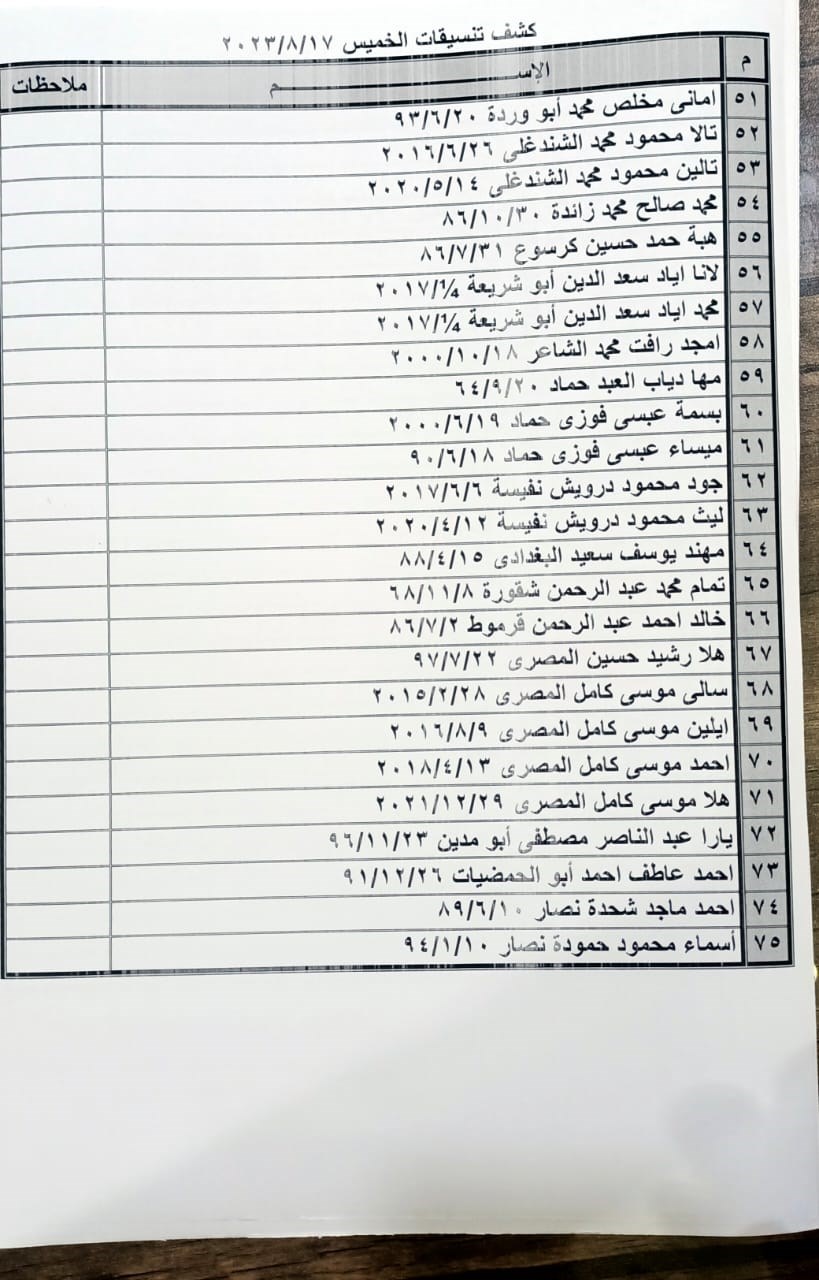 كشف تنسيقات الخميس ٢٠٢٣/٨/١٧
م الإســـــم ملاحظات
٥١ امانى مخلص محمد أبو وردة ٩٣/٦/٢٠
٥٢ تالا محمود محمد الشندغلى ٢٠١٦/٦/٢٦
٥٣ تالين محمود محمد الشندغلى ٢٠٢٠/٥/١٤
٥٤ محمد صالح محمد زائدة ٨٦/١٠/٣٠
٥٥ هبة حمد حسين كرسوع ٨٦/٧/٣١
٥٦ لانا اياد سعد الدين أبو شريعة ٢٠١٧/٦/٤
٥٧ محمد اياد سعد الدين أبو شريعة ٢٠١٧/٦/٤
٥٨ امجد رافت محمد الشاعر ٢٠٠٠/١٠/١٨
٥٩ مها دياب العبد حماد ٦٤/٩/٢٠
٦٠ بسمة عبسى فوزى حماد ٢٠٠٠/٦/١٩
٦١ ميساء عبسى فوزى حماد ٩٠/٦/١٨
٦٢ جود محمود درويش نفيسة ٢٠١٧/٦/٦
٦٣ ليث محمود درويش نفيسة ٢٠٢٠/٤/١٢
٦٤ مهند يوسف سعيد البغدادى ٨٨/٤/١٥
٦٥ تمام محمد عبد الرحمن شقورة ٦٨/١١/٨
٦٦ خالد احمد عبد الرحمن قرموط ٨٦/٧/٢
٦٧ هلا رشيد حسين المصرى ٩٧/٧/٢٢
٦٨ سالى موسى كامل المصرى ٢٠١٥/٢/٢٨
٦٩ ايلين موسى كامل المصرى ٢٠١٦/٨/٩
٧٠ احمد موسى كامل المصرى ٢٠١٨/٤/١٣
٧١ هلا موسى كامل المصرى ٢٠٢١/١٢/٢٩
٧٢ يارا عبد الناصر مصطفى أبو مدين ٩٦/١١/٢٣
٧٣ احمد عاطف احمد أبو الحمضيات ٩١/١٢/٢٦
٧٤ احمد ماجد شحدة نصار ٨٩/٦/١٠
٧٥ أسماء محمود حمودة نصار ٩٤/١/١٠